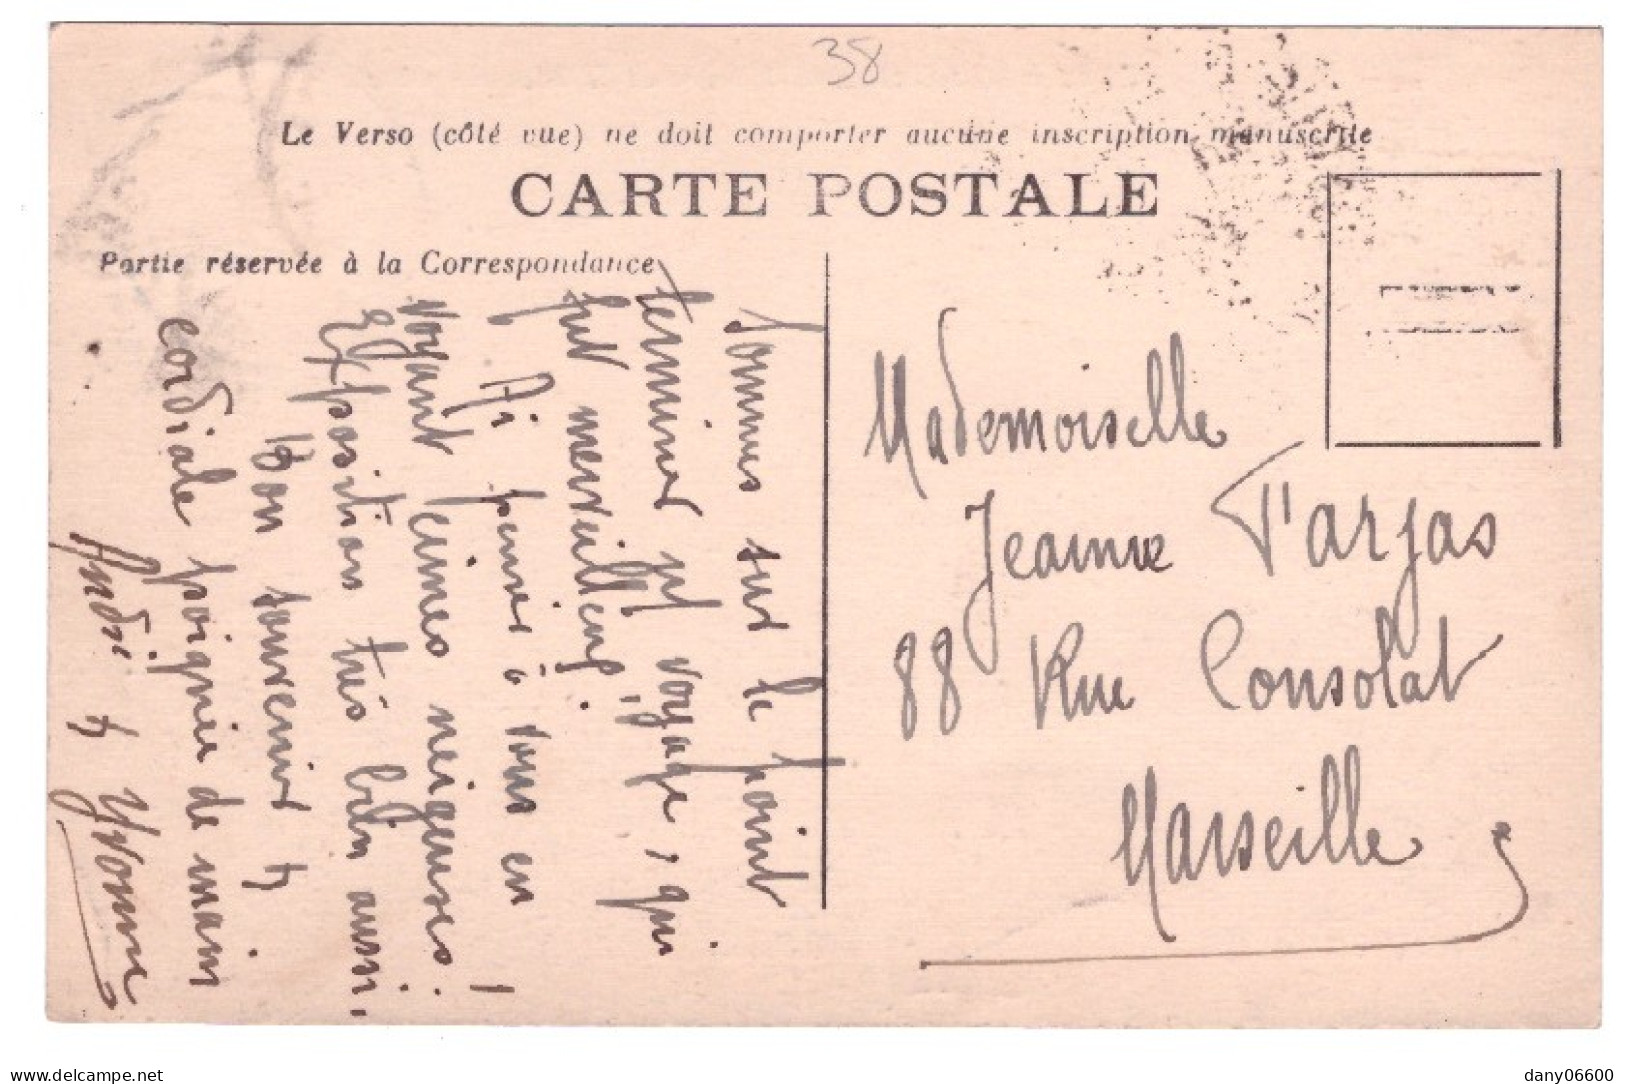 38
Le Verso (côté vue) ne doit comporter aucune inscription manuscrite
CARTE POSTALE
Partie réservée à la Correspondance
Sommes sur le point
terminer pt voyage, qui
fut merveilleux.
Ai pensé à vous en
voyant cimes neigeuses!
Exposition très bien aussi.
Bon souvenir &
cordiale poignée de main
André & Yvonne
Mademoiselle
Jeanne
88 Rue Consolat
Marseille
delcampe.net
dany06600